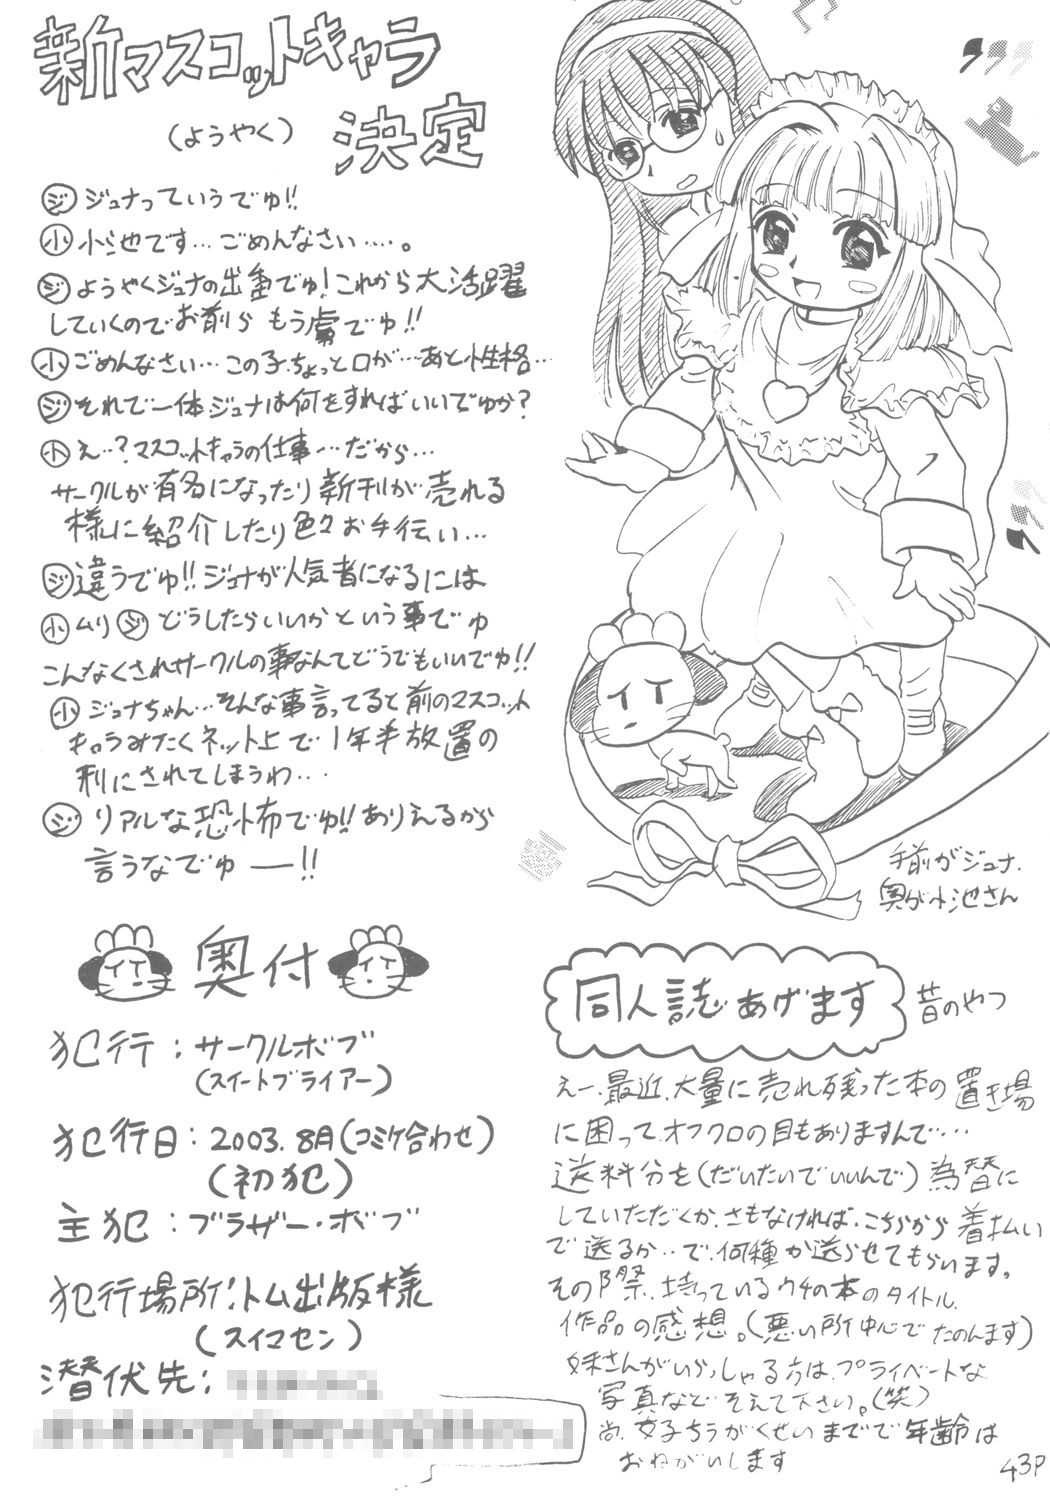 新マスコットキャラ
(ようやく) 決定
ジ ジュナっていうでゅ!!
小 小池です…ごめんなさい….。
ジ ようやくジュナの出番でゅ!これから大活躍
していくのでお前ら もう虜でゅ!!
小 ごめんなさい…この子、ちょっと口が…あと性格…
ジ それで一体ジュナは何をすればいいでゅか?
小 え…?マスコットキャラの仕事…だから…
サークルが有名になったり新刊が売れる
様に紹介したり色々お手伝い…
ジ 違うでゅ!!ジュナが人気者になるには
小 ムリ ジ どうしたらいいかという事でゅ
こんなくされサークルの事なんてどうでもいいでゅ!!
小 ジュナちゃん…そんな事言ってると前のマスコット
キャラみたくネット上で1年半放置の
刑にされてしまうわ…
ジ リアルな恐怖でゅ!!ありえるから
言うなでゅー!!
手前がジュナ.
奥が小池さん
奥付
犯行:サークルボブ
(スイートブライアー)
犯行日:2003.8月(コミケ合わせ)
(初犯)
主犯:ブラザー・ボブ
犯行場所:トム出版様
(スイマセン)
潜伏先:
同人誌あげます 昔のやつ
えー、最近、大量に売れ残った本の置き場
に困って、オフクロの目もありますんで….
送料分を(だいたいでいいんで)為替に
していただくか、さもなければ、こちらから着払い
で送るか…で、何種か送らせてもらいます。
その際、持っているウチの本のタイトル、
作品の感想。(悪い所中心でたのんます)
妹さんがいらっしゃる方は、プライベートな
写真などそえて下さい。(笑)
尚、女子ちうがくせいまでで年齢は
おねがいします
43P